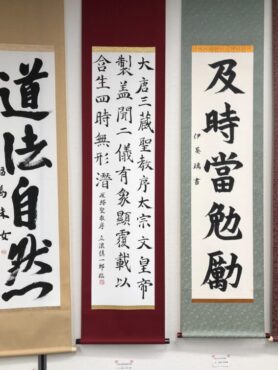 及時當勉勵
書
大唐三藏聖教序太宗文皇帝
製蓋聞二儀有象顯覆載以
含生四時無形潛
聖教序 一郎臨
道法自然